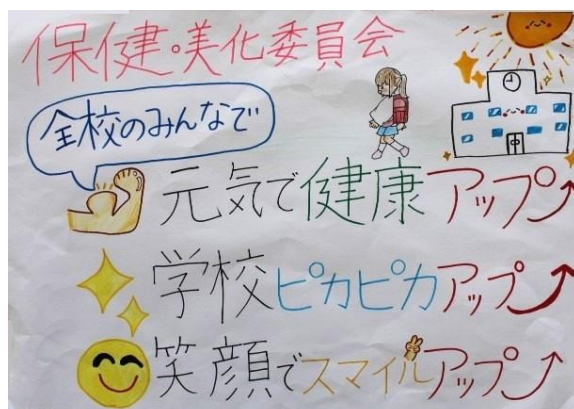 保健・美化委員会
全校のみんなで
元気で健康アップ
学校ピカピカアップ
笑顔でスマイルアップ